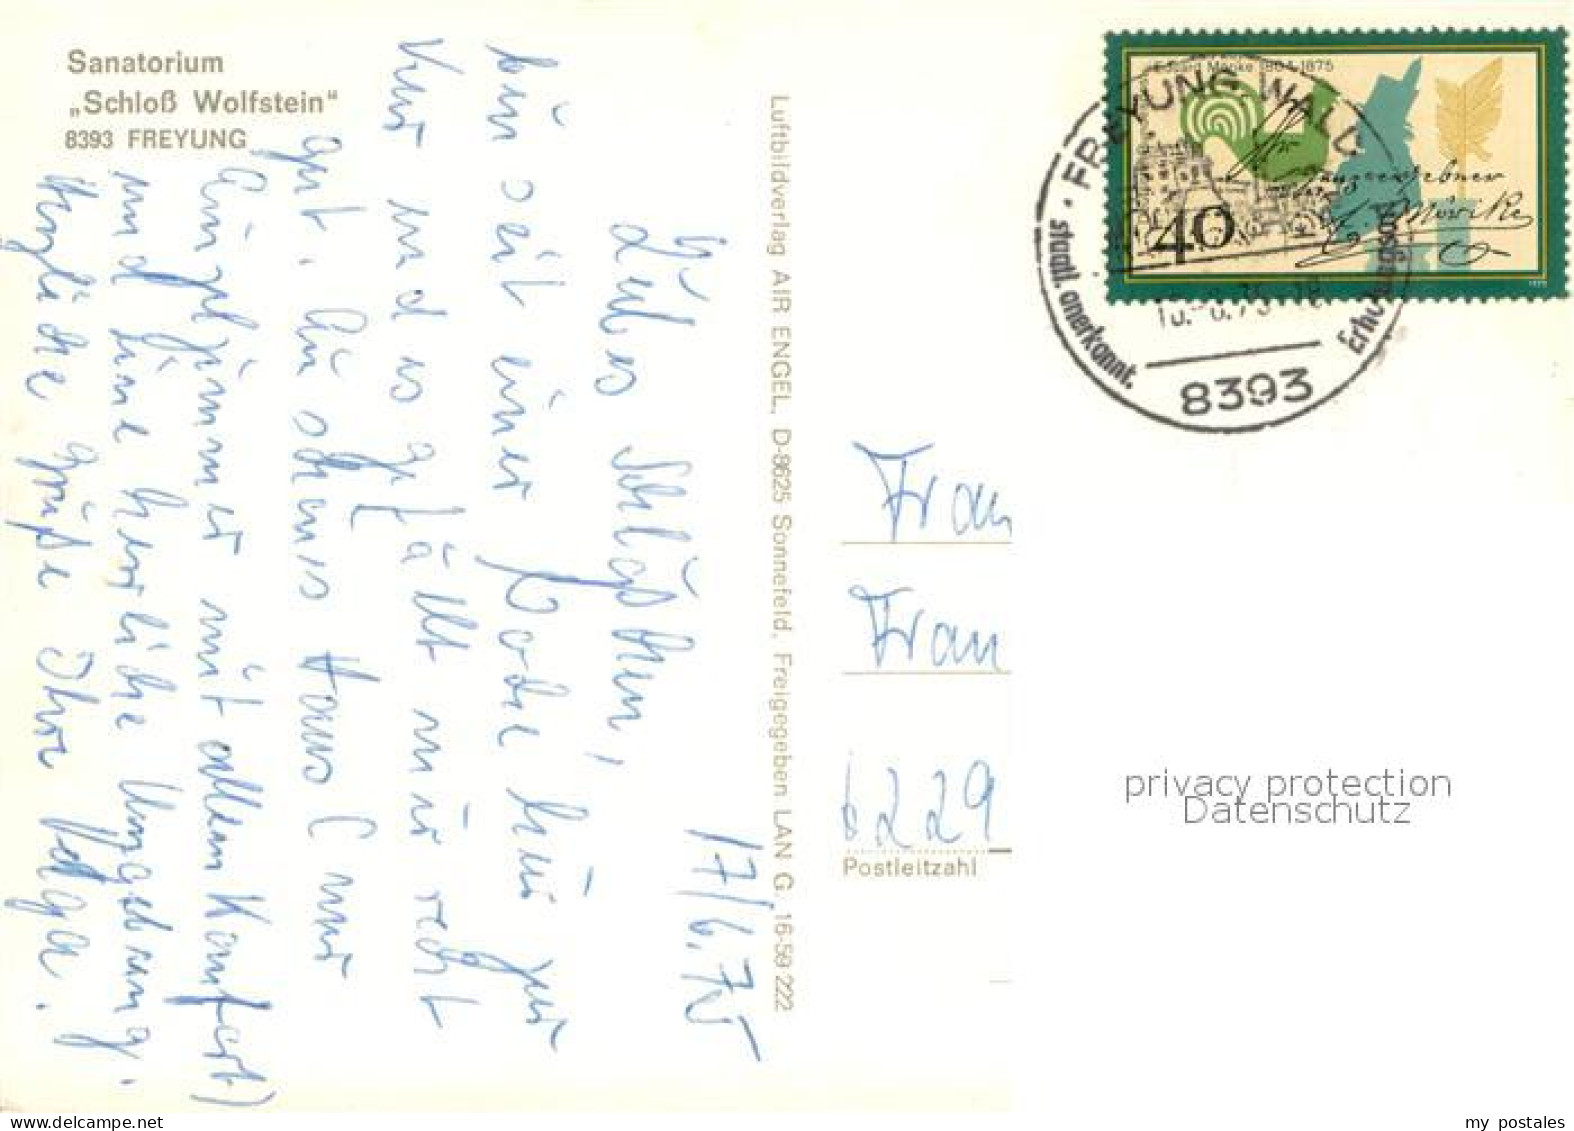 Sanatorium
„Schloß Wolfstein“
8393 FREYUNG
17/6.75
Liebes Schlößchen,
bin seit einer Woche hier zur
Kur und es gefällt mir recht
gut. Ein schönes Haus (nur
Einzelzimmer mit allem Komfort)
und eine herrliche Umgebung.
Herzliche Grüße Ihre Helga.
Luftbildverlag AIR ENGEL, D-8625 Sonnefeld. Freigegeben LAN G. 16-59 222
Eduard Mörike 1804-1875
40
E. Mörike
FREYUNG WALD
staatl. anerkannt.
Erholungsort
8393
Frau
Frau
6229
Postleitzahl
privacy protection
Datenschutz
my postales